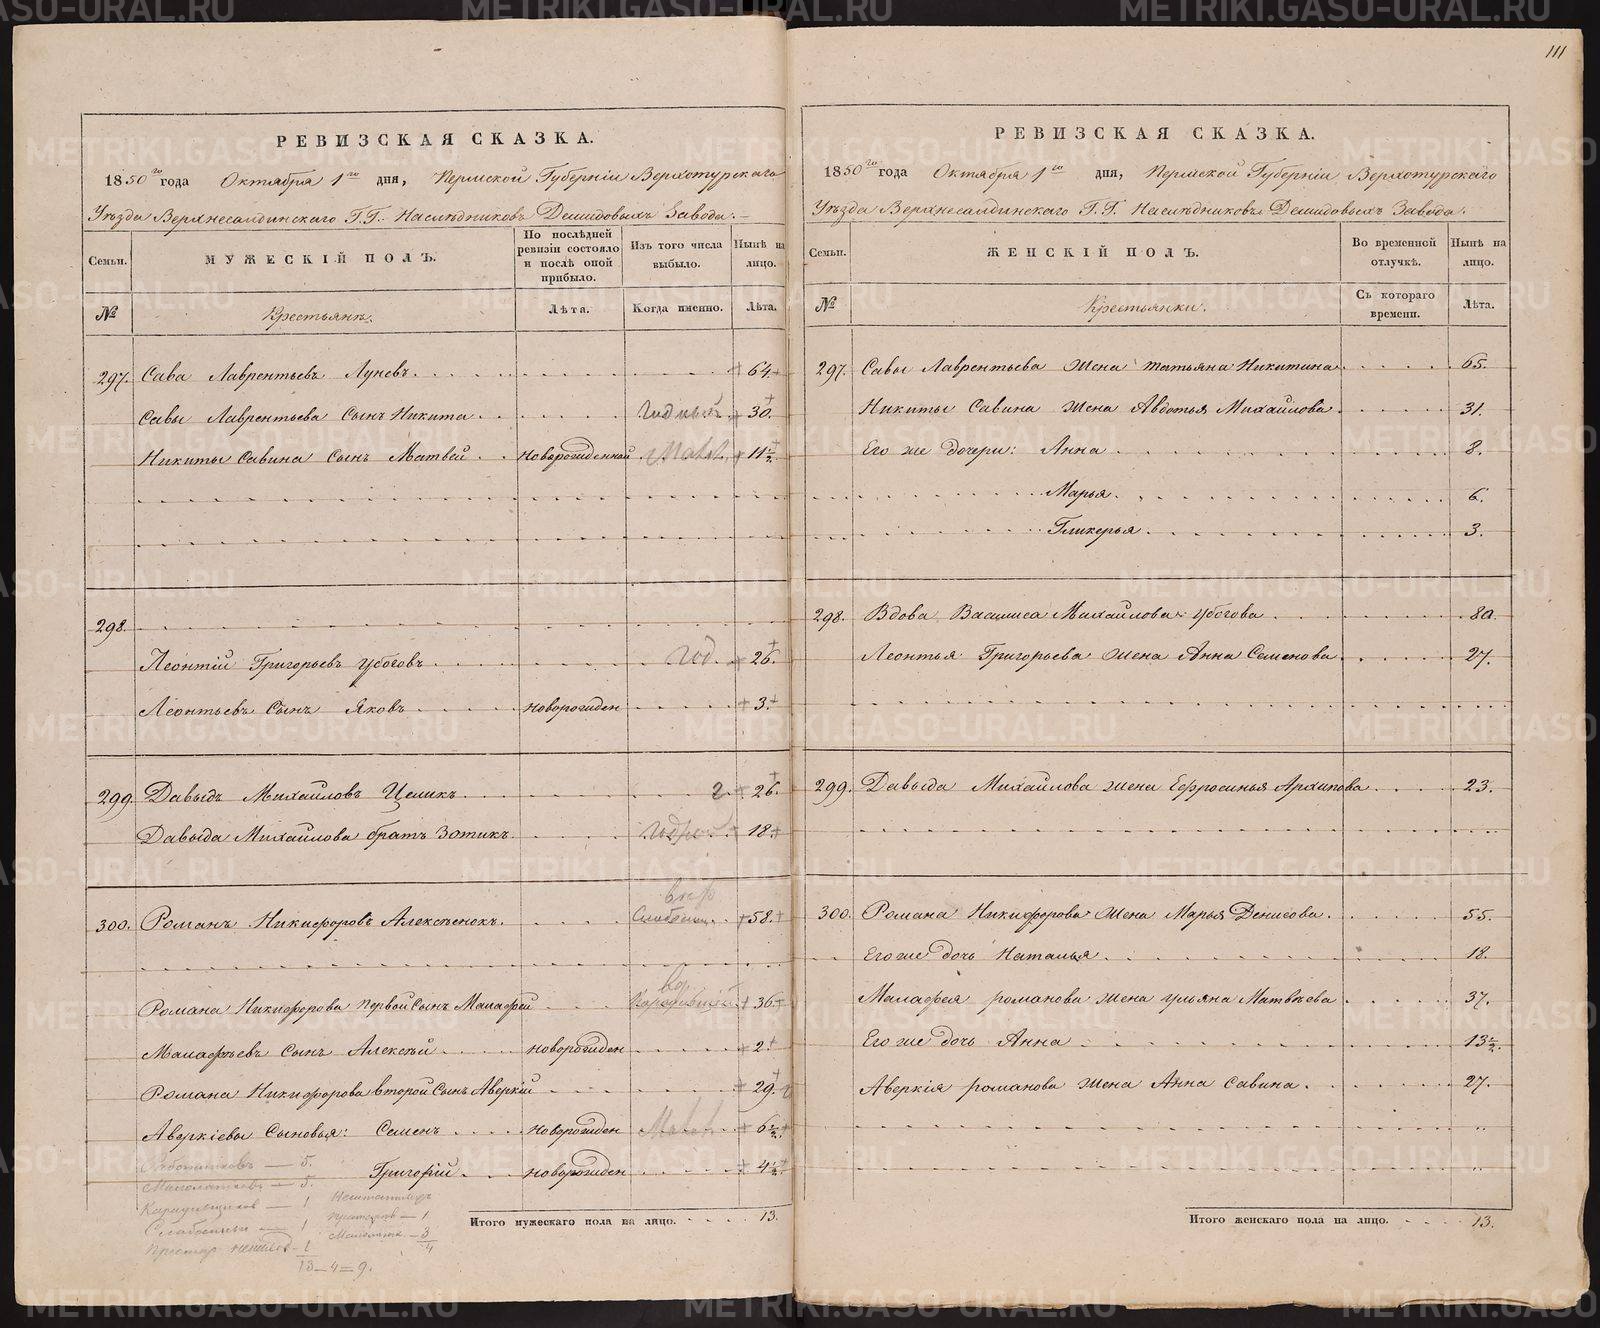 111
РЕВИЗСКАЯ СКАЗКА.
1850го года Октября 1го дня, Пермской Губерніи Верхотурскаго
Уѣзда Верхнесалдинскаго Г.Г. Наслѣдниковъ Демидовыхъ Завода.
Семьи. МУЖЕСКІЙ ПОЛЪ. По послѣдней ревизіи состояло и послѣ оной прибыло. Изъ того числа выбыло. Нынѣ на лицо.
№ Крестьянъ. Лѣта. Когда именно. Лѣта.
297. Сава Лаврентьевъ Луневъ 64
Савы Лаврентьева Сынъ Никита годный 30
Никиты Савина Сынъ Матвей Новорожденной Мал. 11½
298.
Леонтій Григорьевъ Убоговъ год. 26.
Леонтьевъ Сынъ Яковъ новорожден 3.
299. Давыдъ Михайловъ Целикъ г. 26.
Давыда Михайлова братъ Зотикъ 18.
300. Романъ Никифоровъ Алексѣнокъ. 58.
Романа Никифорова первой Сынъ Малафей 36
Малафьевъ Сынъ Алексѣй новорожден 2.
Романа Никифорова второй Сынъ Аверкій 29.
Аверкіевы Сыновья: Семенъ новорожден 6½
Григорій новорожден 4½
Работниковъ — 5.
Малолѣтковъ — 5.
— 1
— 1
— 1
— 1.
— 3
4
13 — 4 = 9.
Итого мужескаго пола на лицо. 13.
РЕВИЗСКАЯ СКАЗКА.
1850го года Октября 1го дня, Пермской Губерніи Верхотурскаго
Уѣзда Верхнесалдинскаго Г.Г. Наслѣдниковъ Демидовыхъ Завода.
Семьи. ЖЕНСКІЙ ПОЛЪ. Во временной отлучкѣ. Нынѣ на лицо.
№ Крестьянки. Съ котораго времени. Лѣта.
297. Савы Лаврентьева жена Татьяна Никитина 65.
Никиты Савина жена Авдотья Михайлова 31.
Его же дочери: Анна 8.
Марья 6.
Гликерья 3.
298. Вдова Василиса Михайлова Убогова 80.
Леонтья Григорьева жена Анна Семенова 27.
299. Давыда Михайлова жена Ефросинья Архипова 23.
300. Романа Никифорова жена Марья Денисова 55.
Его же дочь Наталья 18.
Малафея романова жена Ульяна Матвѣева 37.
Его же дочь Анна 13½
Аверкія романова жена Анна Савина 27.
Итого женскаго пола на лицо. 13.
METRIKI.GASO-URAL.RU